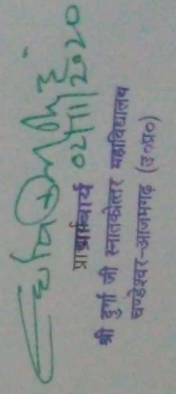 02/11/2020
प्राचार्य
श्री दुर्गा जी स्नातकोत्तर महाविद्यालय
चण्डेश्वर-आजमगढ़ (उ०प्र०)